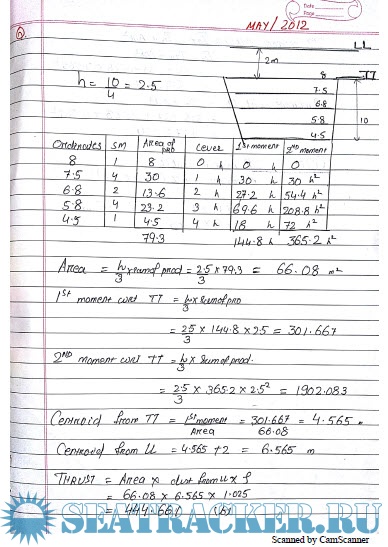 Date
Page
MAY/2012
6
LL
2m
8 TT
h = 10/4 = 2.5
7.5
6.8
5.8
10
4.5
Ordenates SM Area of PRD Lever 1st moment 2ND moment
8 1 8 0 h 0 h 0
7.5 4 30 1 h 30 h 30 h²
6.8 2 13.6 2 h 27.2 h 54.4 h²
5.8 4 23.2 3 h 69.6 h 208.8 h²
4.5 1 4.5 4 h 18 h 72 h²
79.3 144.8 h 365.2 h²
Area = h/3 x sum of prod = 2.5/3 x 79.3 = 66.08 m²
1st moment wrt TT = h/3 x sum of pro
= 2.5/3 x 144.8 x 2.5 = 301.667
2ND moment wrt TT = h/3 x sum of prod.
= 2.5/3 x 365.2 x 2.5² = 1902.083
Centroid from TT = 1st moment/Area = 301.667/66.08 = 4.565 m
Centroid from LL = 4.565 + 2 = 6.565 m
THRUST = Area x dist from LL x ρ
= 66.08 x 6.565 x 1.025
= 444.661 (b)
SEATRACKER.RU
Scanned by CamScanner